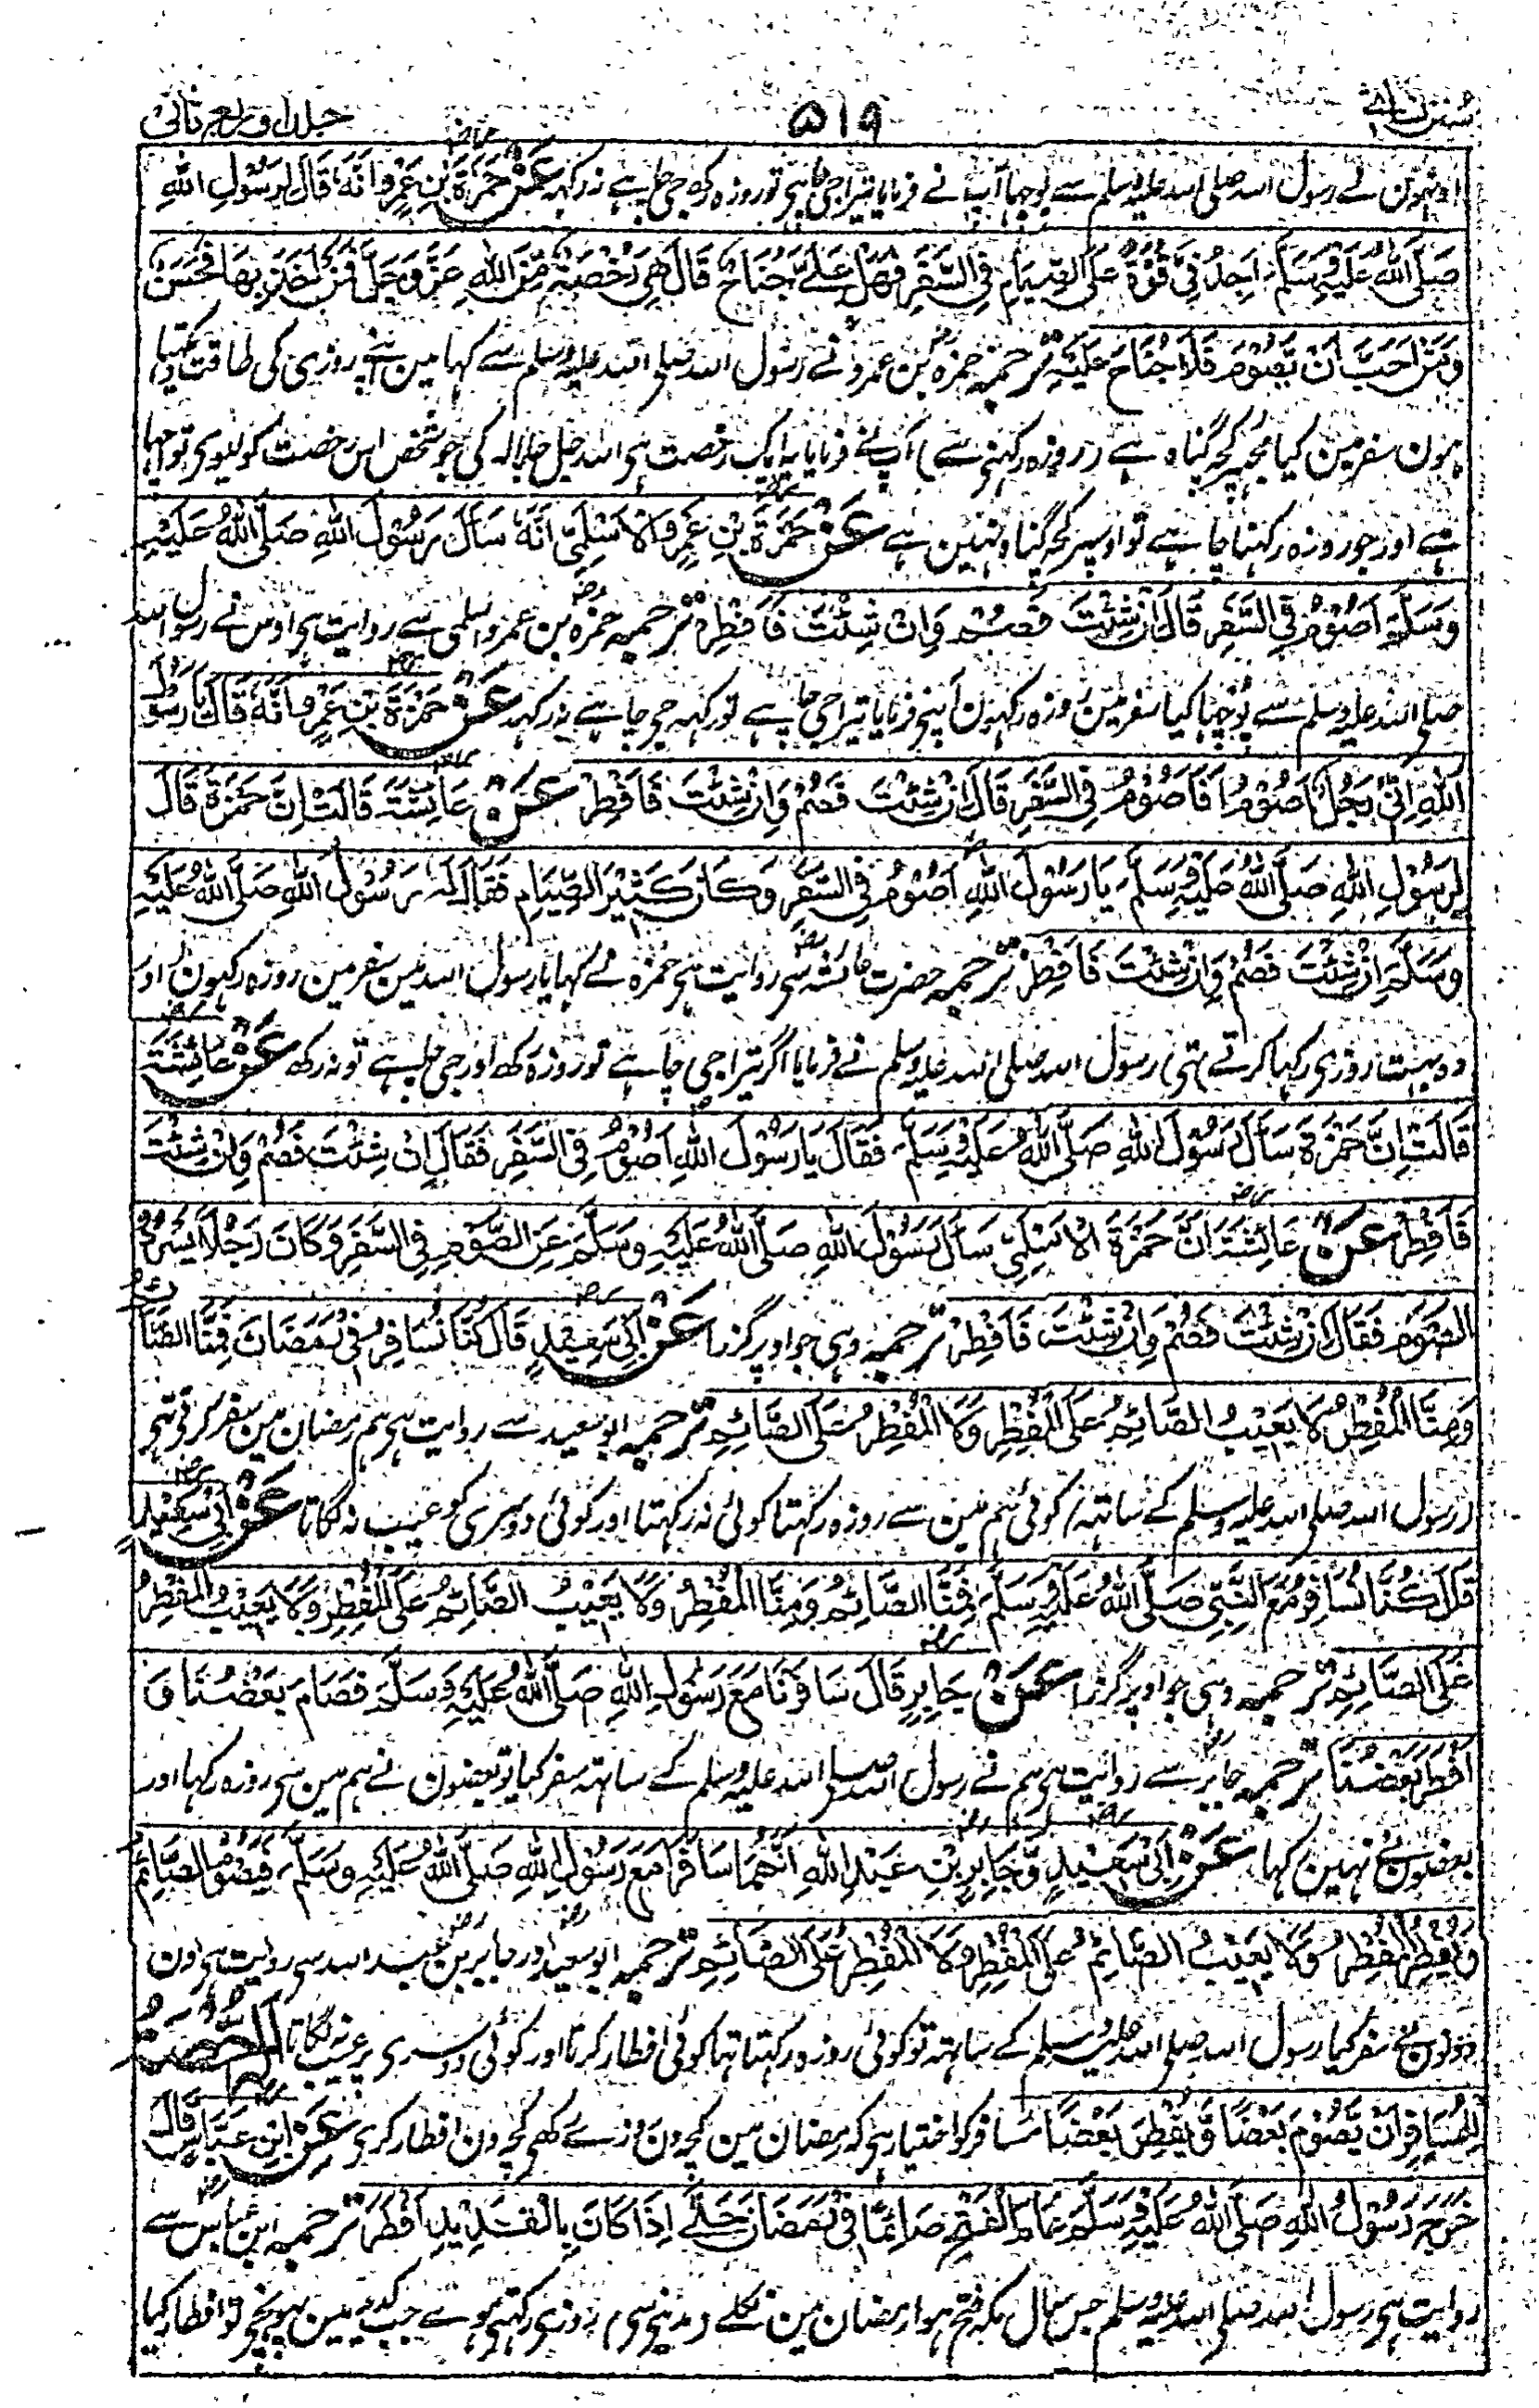 سنن نسائی ۵۱۹ جلد اول ربع ثانی
اونہون نے رسول اللہ صلی اللہ علیہ وسلم سے پوچہا آپ نے فرمایا تیرا جی چاہی تو روزہ رکھ جی چاہے نہ رکہہ عَنْ حَمْزَةَ بْنِ عَمْرٍو اَنَّهٗ قَالَ لِرَسُوْلِ اللّٰهِ
صَلَّى اللّٰهُ عَلَيْهِ وَسَلَّمَ اَجِدُ فِيَّ قُوَّةً عَلَى الصِّيَامِ فِي السَّفَرِ فَهَلْ عَلَيَّ جُنَاحٌ قَالَ هِيَ رُخْصَةٌ مِّنَ اللّٰهِ عَزَّ وَجَلَّ فَمَنْ اَخَذَ بِهَا فَحَسَنٌ
وَمَنْ اَحَبَّ اَنْ يَّصُوْمَ فَلَا جُنَاحَ عَلَيْهِ ترجمہ حمزہ بن عمرو نے رسول اللہ صلی اللہ علیہ وسلم سے کہا مین اپنے روزی کی طاقت دیکہتا
ہون سفر مین کیا مجہپر کچہ گناہ ہے (روزہ رکہنی سے) آپ نے فرمایا یہ ایک رخصت ہی اللہ جل جلالہ کی جو شخص اس رخصت کو لیوی تو اچہا
ہے اور جو روزہ رکہنا چاہے تو اوسپر کچہ گناہ نہین ہے عَنْ حَمْزَةَ بْنِ عَمْرٍو الْاَسْلَمِيِّ اَنَّهٗ سَاَلَ رَسُوْلَ اللّٰهِ صَلَّى اللّٰهُ عَلَيْهِ
وَسَلَّمَ اَصُوْمُ فِي السَّفَرِ قَالَ اِنْ شِئْتَ فَصُمْ وَاِنْ شِئْتَ فَاَفْطِرْ ترجمہ حمزہ بن عمرو اسلمی سے روایت ہی اوس نے رسول اللہ
صلی اللہ علیہ وسلم سے پوچہا کیا سفر مین روزہ رکہون آپنی فرمایا تیرا جی چاہے تو رکہہ جی چاہے نہ رکہہ عَنْ حَمْزَةَ بْنِ عَمْرٍو اَنَّهٗ قَالَ يَا رَسُوْلَ
اللّٰهِ اِنِّيْ رَجُلٌ اَصُوْمُ اَفَاَصُوْمُ فِي السَّفَرِ قَالَ اِنْ شِئْتَ فَصُمْ وَاِنْ شِئْتَ فَاَفْطِرْ عَنْ عَائِشَةَ قَالَتْ اِنَّ حَمْزَةَ قَالَ
لِرَسُوْلِ اللّٰهِ صَلَّى اللّٰهُ عَلَيْهِ وَسَلَّمَ يَا رَسُوْلَ اللّٰهِ اَصُوْمُ فِي السَّفَرِ وَكَانَ كَثِيْرَ الصِّيَامِ فَقَالَ لَهٗ رَسُوْلُ اللّٰهِ صَلَّى اللّٰهُ عَلَيْهِ
وَسَلَّمَ اِنْ شِئْتَ فَصُمْ وَاِنْ شِئْتَ فَاَفْطِرْ ترجمہ حضرت عائشہ سی روایت ہی حمزہ نے کہا یا رسول اللہ مین سفر مین روزہ رکہون اور
وہ بہت روزی رکہا کرتے تہی رسول اللہ صلی اللہ علیہ وسلم نے فرمایا اگر تیرا جی چاہے تو روزہ رکھ اور جی چاہے تو نہ رکھ عَنْ عَائِشَةَ
قَالَتْ اِنَّ حَمْزَةَ سَاَلَ رَسُوْلَ اللّٰهِ صَلَّى اللّٰهُ عَلَيْهِ وَسَلَّمَ فَقَالَ يَا رَسُوْلَ اللّٰهِ اَصُوْمُ فِي السَّفَرِ فَقَالَ اِنْ شِئْتَ فَصُمْ وَاِنْ شِئْتَ
فَاَفْطِرْ عَنْ عَائِشَةَ اَنَّ حَمْزَةَ الْاَسْلَمِيَّ سَاَلَ رَسُوْلَ اللّٰهِ صَلَّى اللّٰهُ عَلَيْهِ وَسَلَّمَ عَنِ الصَّوْمِ فِي السَّفَرِ وَكَانَ رَجُلًا يَسْرُدُ
الصَّوْمَ فَقَالَ اِنْ شِئْتَ فَصُمْ وَاِنْ شِئْتَ فَاَفْطِرْ ترجمہ وہی جو اوپر گزرا عَنْ اَبِيْ سَعِيْدٍ قَالَ كُنَّا نُسَافِرُ فِيْ رَمَضَانَ فَمِنَّا الصَّائِمُ
وَمِنَّا الْمُفْطِرُ لَا يَعِيْبُ الصَّائِمُ عَلَى الْمُفْطِرِ وَلَا الْمُفْطِرُ عَلَى الصَّائِمِ ترجمہ ابو سعید سے روایت ہی ہم رمضان مین سفر کرتی تہی
(رسول اللہ صلی اللہ علیہ وسلم کے ساتہہ) کوئی ہم مین سے روزہ رکہتا کوئی نہ رکہتا اور کوئی دوسری کو عیب نہ لگاتا عَنْ اَبِيْ سَعِيْدٍ
قَالَ كُنَّا نُسَافِرُ مَعَ النَّبِيِّ صَلَّى اللّٰهُ عَلَيْهِ وَسَلَّمَ فَمِنَّا الصَّائِمُ وَمِنَّا الْمُفْطِرُ وَلَا يَعِيْبُ الصَّائِمُ عَلَى الْمُفْطِرِ وَلَا يَعِيْبُ الْمُفْطِرُ
عَلَى الصَّائِمِ ترجمہ وہی جو اوپر گزرا عَنْ جَابِرٍ قَالَ سَافَرْنَا مَعَ رَسُوْلِ اللّٰهِ صَلَّى اللّٰهُ عَلَيْهِ وَسَلَّمَ فَصَامَ بَعْضُنَا وَ
اَفْطَرَ بَعْضُنَا ترجمہ جابر سے روایت ہی ہم نے رسول اللہ صلی اللہ علیہ وسلم کے ساتہہ سفر کیا تو بعضون نے ہم مین سی روزہ رکہا اور
بعضون نے نہین رکہا عَنْ اَبِيْ سَعِيْدٍ وَّجَابِرِ بْنِ عَبْدِ اللّٰهِ اَنَّهُمَا سَافَرَا مَعَ رَسُوْلِ اللّٰهِ صَلَّى اللّٰهُ عَلَيْهِ وَسَلَّمَ فَيَصُوْمُ الصَّائِمُ
وَيُفْطِرُ الْمُفْطِرُ وَلَا يَعِيْبُ الصَّائِمُ عَلَى الْمُفْطِرِ وَلَا الْمُفْطِرُ عَلَى الصَّائِمِ ترجمہ ابو سعید اور جابر بن عبد اللہ سی روایت ہی اون
دونون نے سفر کیا رسول اللہ صلی اللہ علیہ وسلم کے ساتہہ تو کوئی روزہ رکہتا تہا کوئی افطار کرتا اور کوئی دوسری پر عیب نہ لگاتا الرُّخْصَةُ
لِلْمُسَافِرِ اَنْ يَّصُوْمَ بَعْضًا وَّيُفْطِرَ بَعْضًا مسافر کو اختیار ہی کہ رمضان مین کچہ دن روزے رکھی کچہ دن افطار کری عَنِ ابْنِ عَبَّاسٍ قَالَ
خَرَجَ رَسُوْلُ اللّٰهِ صَلَّى اللّٰهُ عَلَيْهِ وَسَلَّمَ عَامَ الْفَتْحِ صَائِمًا فِيْ رَمَضَانَ حَتّٰى اِذَا كَانَ بِالْقَدِيْدِ اَفْطَرَ ترجمہ ابن عباس سے
روایت ہی رسول اللہ صلی اللہ علیہ وسلم جس سال مکہ فتح ہوا رمضان مین نکلے (مدینہ سی) روزی رکہتی ہوے جب کدید مین پہونچی تو افطار کیا